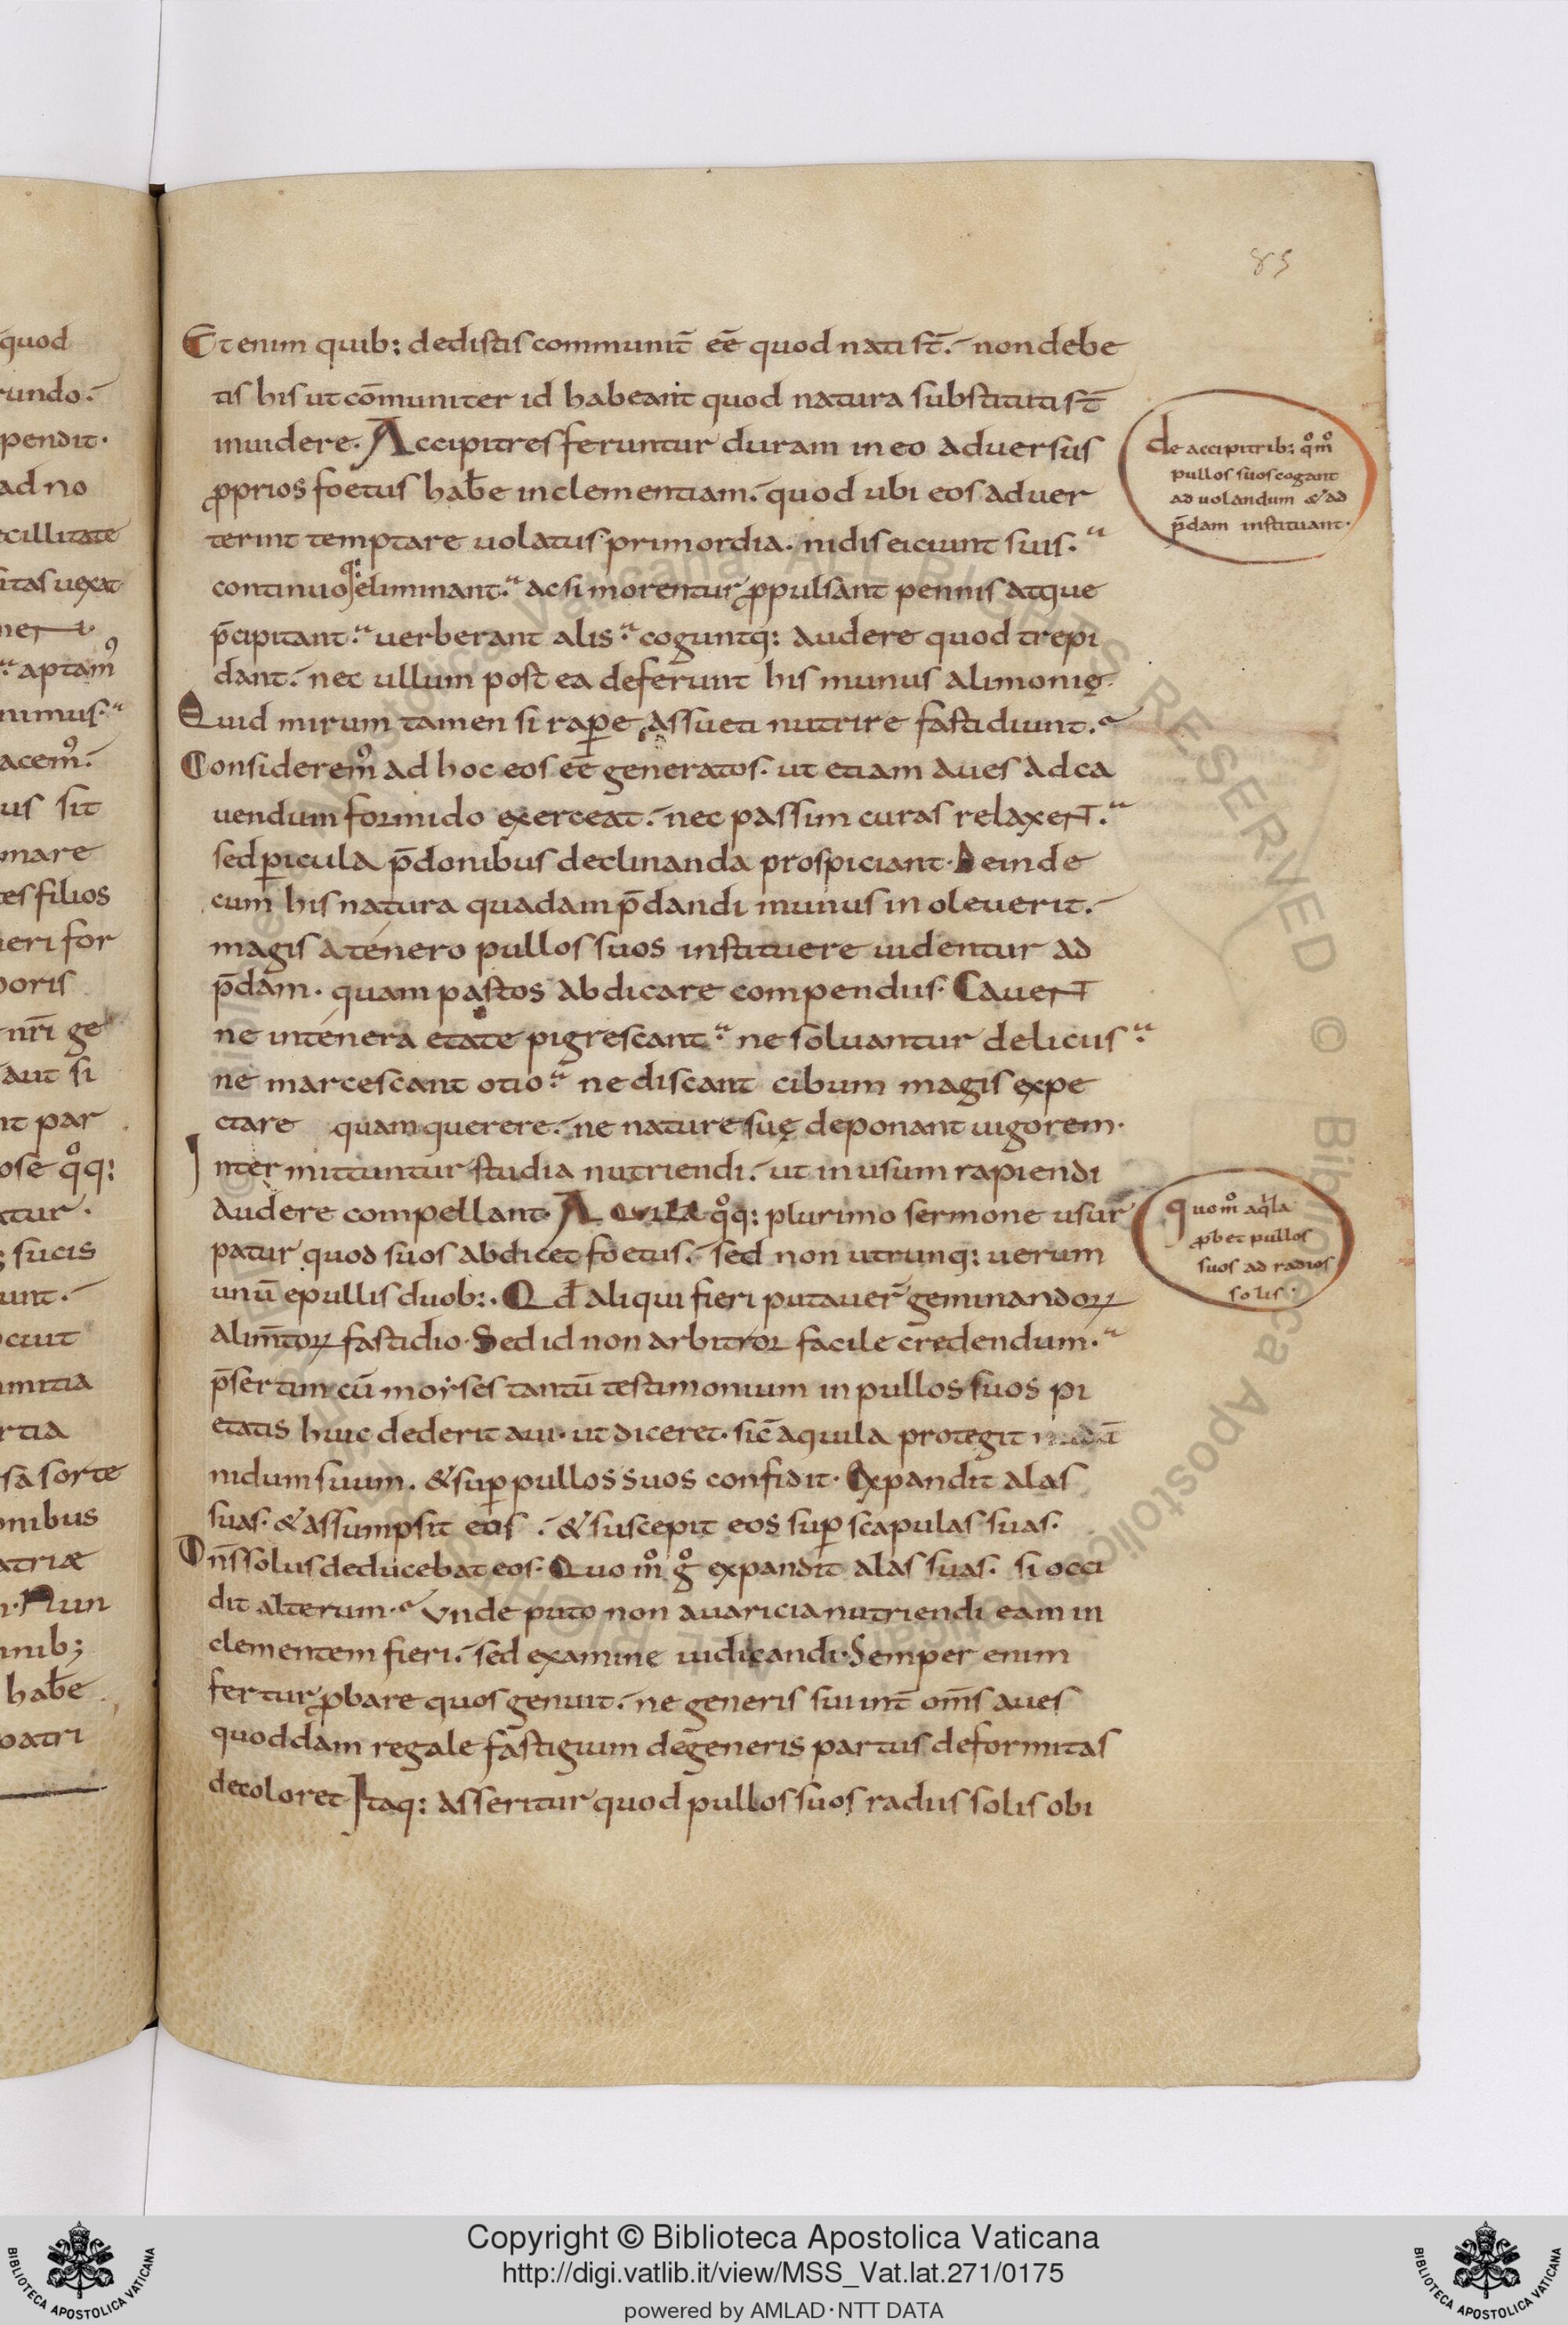 quod
rundo.
pendit.
ad no
ecillitate
sitas uexat
nent.
aptamꝰ
nimus.
acemꝰ.
us sit
mare
tes filios
ieri for
poris
nr̄i ge
aut si
nt par
ose qͦq:
atur.
sucis
unt.
ociut
imitia
rtia
sa sorte
onibus
atriæ
Nun
nnib;
hab̄e
patri
85
Et enim quib: dedistis communit̄ eē quod nati st̄. non debe
tis his ut cōmuniter id habeant quod natura substituti st̄
inuidere. Accipitres feruntur duram in eo aduersus
ꝓprios foetus hab̄e inclementiam. quod ubi eos aduer
terint temptare uolatus primordia. nidis eiciunt suis.
continuoq: eliminant. ac si morentur ꝓpulsant pennis atque
p̄cipitant. uerberant alis. coguntq: audere quod trepi
dant. nec ullum post ea deferunt his munus alimonię.
Quid mirum tamen si raꝑe assueti nutrire fastidiunt.
Consideremꝰ ad hoc eos eē generatos. ut etiam aues ad ca
uendum formido exerceat. nec passim curas relaxent.
sed ꝑicula p̄donibus declinanda prospiciant. Deinde
cum his natura quadam p̄dandi munus inoleuerit.
magis a tenero pullos suos instituere uidentur ad
p̄dam. quam pastos abdicare compendiis. Cauent
ne in tenera etate pigrescant. ne soluantur deliciis.
ne marcescant otio. ne discant cibum magis expe
ctare quam querere. ne nature suę deponant uigorem.
Intermittuntur studia nutriendi. ut in usum rapiendi
audere compellant. Aquila qͦq: plurimo sermone usur
patur quod suos abdicet foetus. sed non utrunq: uerum
unū e pullis duob:. Qd̄ aliqui fieri putauer̄ geminandoꝝ
alim̄toꝝ fastidio. Sed id non arbitror facile credendum.
p̄sertim cū moyses tantū testimonium in pullos suos pi
etatis huic dederit aui. ut diceret. sic̄ aquila protegit
nidum suum. & suꝑ pullos suos confidit. Expandit alas
suas. & assumpsit eos. & suscepit eos suꝑ scapulas suas.
Dn̄s solus deducebat eos. Quo mͦ gͦ expandit alas suas. si occi
dit alterum. Vnde puto non auaricia nutriendi eam in
clementem fieri. sed examine iudicandi. Semper enim
fertur ꝓbare quos genuit. ne generis sui int̄ om̄s aues
quoddam regale fastigium degeneris partus deformitas
decoloret. Itaq: asseritur quod pullos suos radiis solis obi
de accipitrib: qͦmͦ
pullos suos cogant
ad uolandum & ad
p̄dam instituant.
quomͦ aqͥla
ꝓbet pullos
suos ad radios
solis.
Copyright © Biblioteca Apostolica Vaticana
http://digi.vatlib.it/view/MSS_Vat.lat.271/0175
powered by AMLAD·NTT DATA
BIBLIOTECA APOSTOLICA VATICANA
BIBLIOTECA APOSTOLICA VATICANA